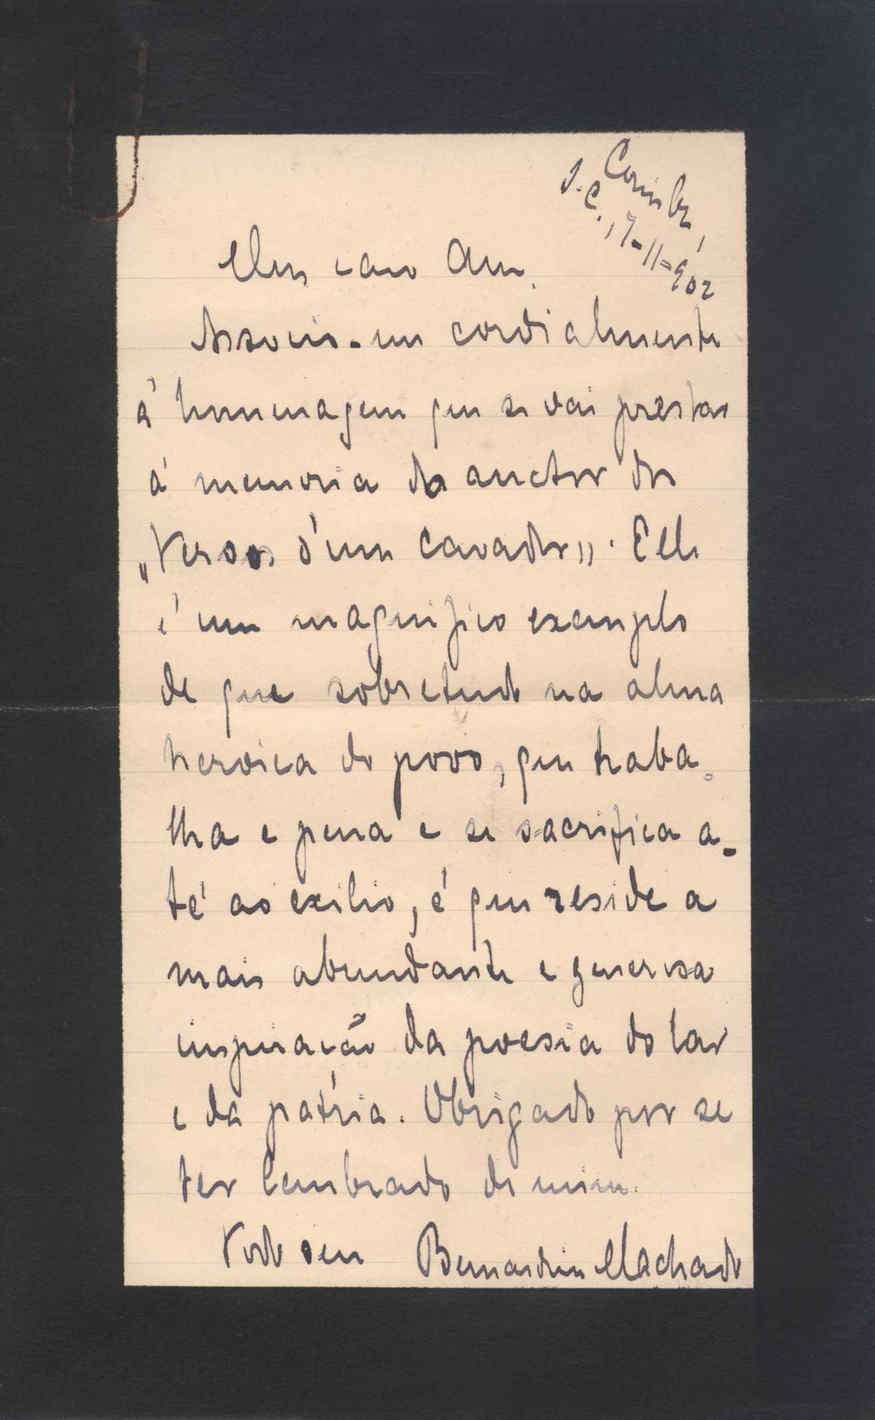 Coimbra,
S. C. 17-11-902
Meu caro Am.
Associo-me cordialmente
á homenagem que se vai prestar
á memoria do auctor dos
„Versos d'um cavador". Elle
é um magnifico exemplo
de que sobretudo na alma
heroica do povo, que traba-
lha e pena e se sacrifica a-
té ao exilio, é que reside a
mais abundante e generosa
inspiração da poesia do lar
e da pátria. Obrigado por se
ter lembrado de mim.
Todo seu Bernardino Machado